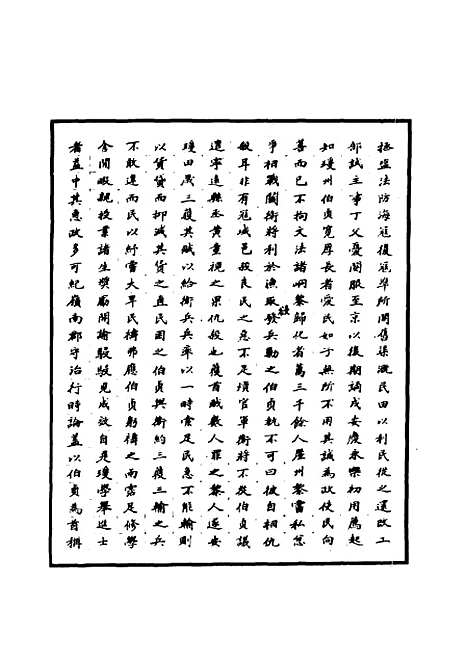 極盜法防海寇復冦準所開舊渠溉民田以利民從之還改工
部試主事丁父憂閱服至京以後期謫戍安慶永樂初用薦起
如瓊州伯貞寬厚長者愛民如子無所不用其誠為政使民向
善而已不拘文法諸峒黎歸化者萬三千餘人崖州黎嘗私忿
爭相戰鬬衛將利於漁取發兵勦之伯貞執不可曰彼自相仇
殺耳非有寇城邑殺良民之惡不足煩官軍衛將不從伯貞議
遣寧遠縣丞黄童視之果仇殺也獲首賊數人罪之黎人遂安
瓊田歳三獲其賦以給衛兵兵率以一時索足民急不能輸則
以貨貸而抑減其貨之直民困之伯貞與衛約三獲三輸之兵
不敢違而民以紓嘗大旱民禱弗應伯貞躬禱之雨霑足修學
舍閒暇親授業諸生奬勵開諭駸駸見成效自是瓊學舉進士
者益中其惠政多可紀嶺南郡守治行時論蓋以伯貞為首稱